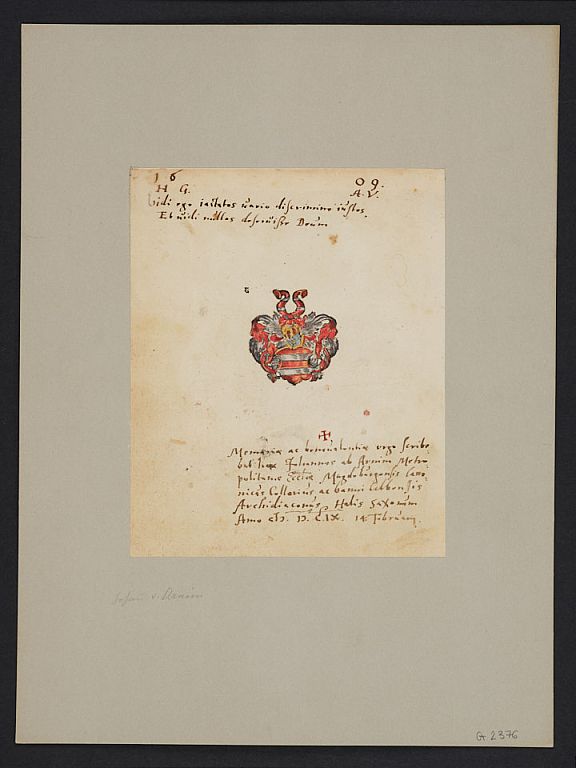 16 09.
H G. A. V.
Vidi ego iactatos vario discrimine iustos,
Et vidi nullos deseruisse Deum
Memoriæ ac benevolentiæ ergo scribe
bat hæc Johannes ab Arnim Metro
politanæ Eccliæ Magdeburgensis Cano
nicus Cellarius, ac banni
Archidiaconus Halis Saxonum
Anno CIƆ. D. C. IX. 14. Februarij.
Johann v. Arnim
G 2376